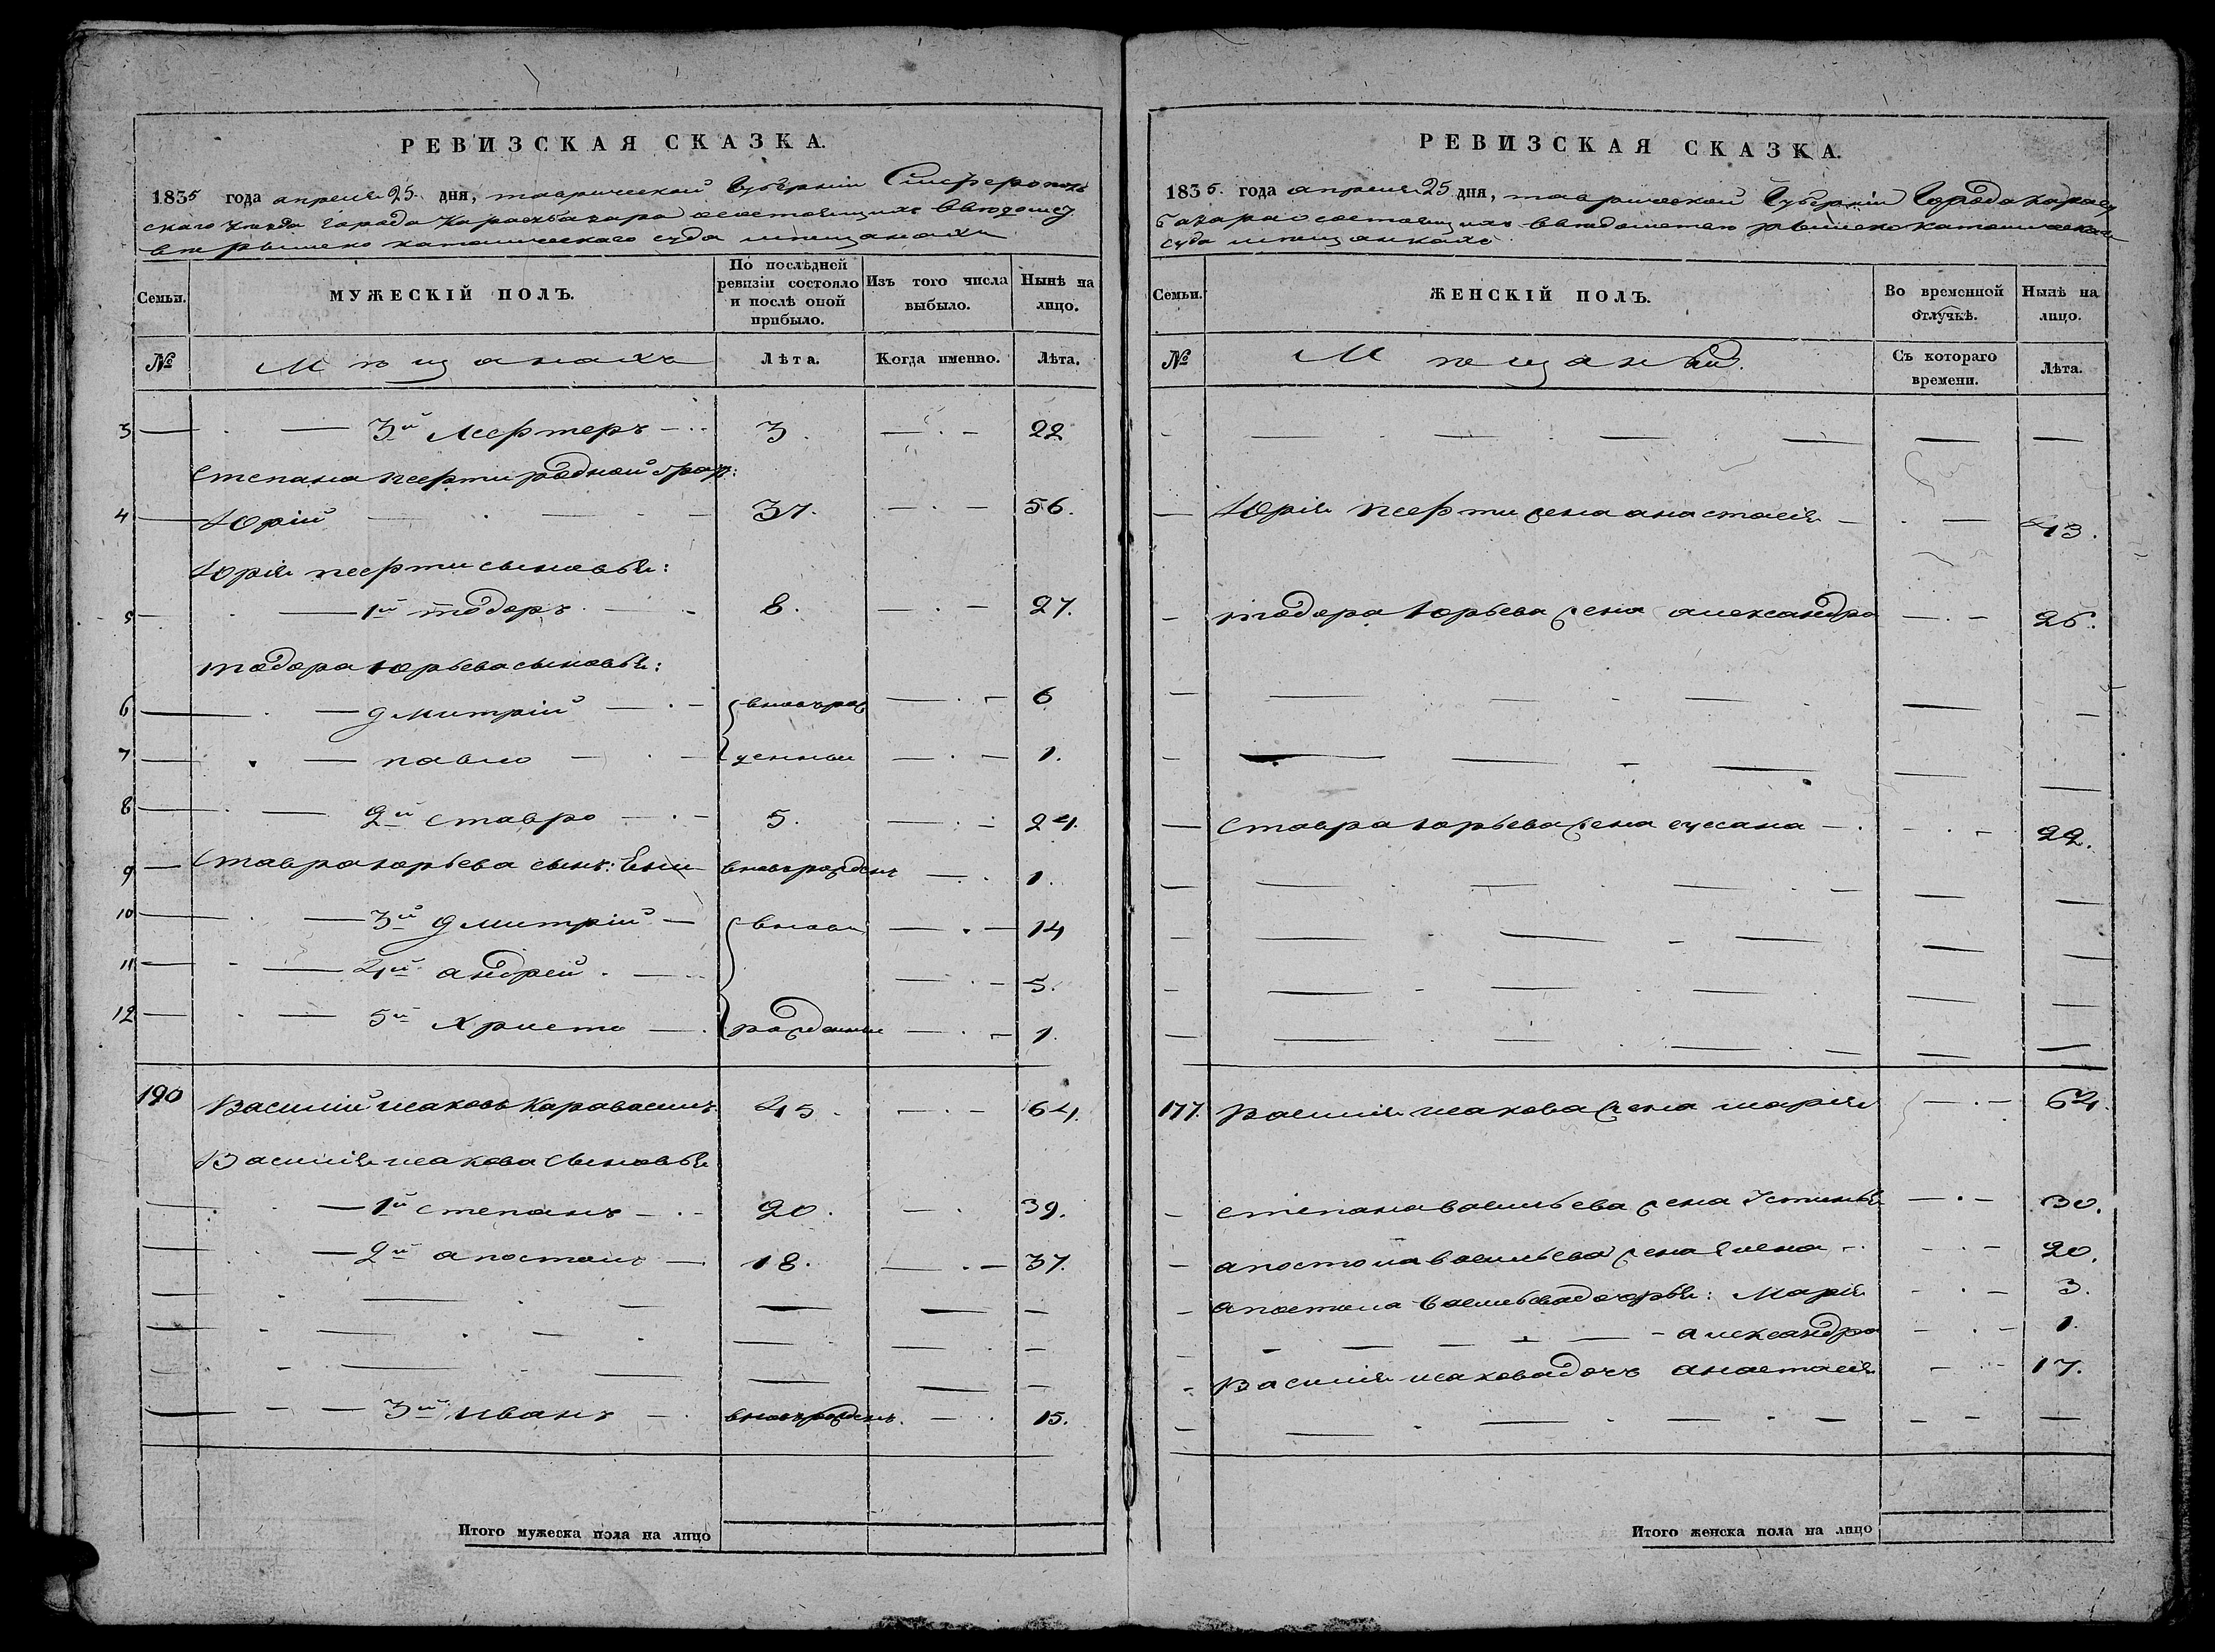 РЕВИЗСКАЯ СКАЗКА.
1835 года апреля 25 дня, таврической Губерніи Симферополь
скаго уезда города Карасубазара состоящихъ въ ведомст
ве римско католическаго суда мещанахъ
Семьи. МУЖЕСКІЙ ПОЛЪ. По послѣдней ревизіи состояло и послѣ оной прибыло. Изъ того числа выбыло. Нынѣ на лицо.
№ Мѣщанахъ Лѣта. Когда именно. Лѣта.
3 — 3й — 3. — 22
Степана родной брат:
4 — Юрій — 37. — 56.
Юрія сыновья:
5 — 1й тодоръ — 8. — 27.
тодора юрьева сыновья:
6 — дмитрій — вновь рож — 6
7 — павло — денные — 1.
8 — 2й ставро — 5. — 24.
9 — Ставра юрьева сынъ: вновь рожденъ — 1.
10 — 3й дмитрій — вновь — 14
11 — 4й андрей — 5.
12 — 5й Христо — рожденные — 1.
190 Василий исаковъ 45. — 64.
Василія исакова сыновья
— 1й степанъ — 20. — 39.
— 2й апостолъ — 18. — 37.
— 3й иванъ — вновь рожденъ. — 15.
Итого мужеска пола на лицо
РЕВИЗСКАЯ СКАЗКА.
1835. года апреля 25 дня, таврической Губерніи Города карасу
базара состоящихъ в ведомстве римско католическаго
суда мещанкахъ
Семьи. ЖЕНСКІЙ ПОЛЪ. Во временной отлучкѣ. Нынѣ на лицо.
№ Съ котораго времени. Лѣта.
— Юрія жена анастасія — 43.
— тодора юрьева жена александра — 26.
— Ставра юрьева жена — 22.
177. Василія исакова жена марія — 64.
— степана васильева жена Устинья — 30.
— апостола васильева жена Елена — 20.
— апостола васильева дочерья: Марія — 3.
— александра — 1.
— Василія исакова дочь анастасія — 17.
Итого женска пола на лицо